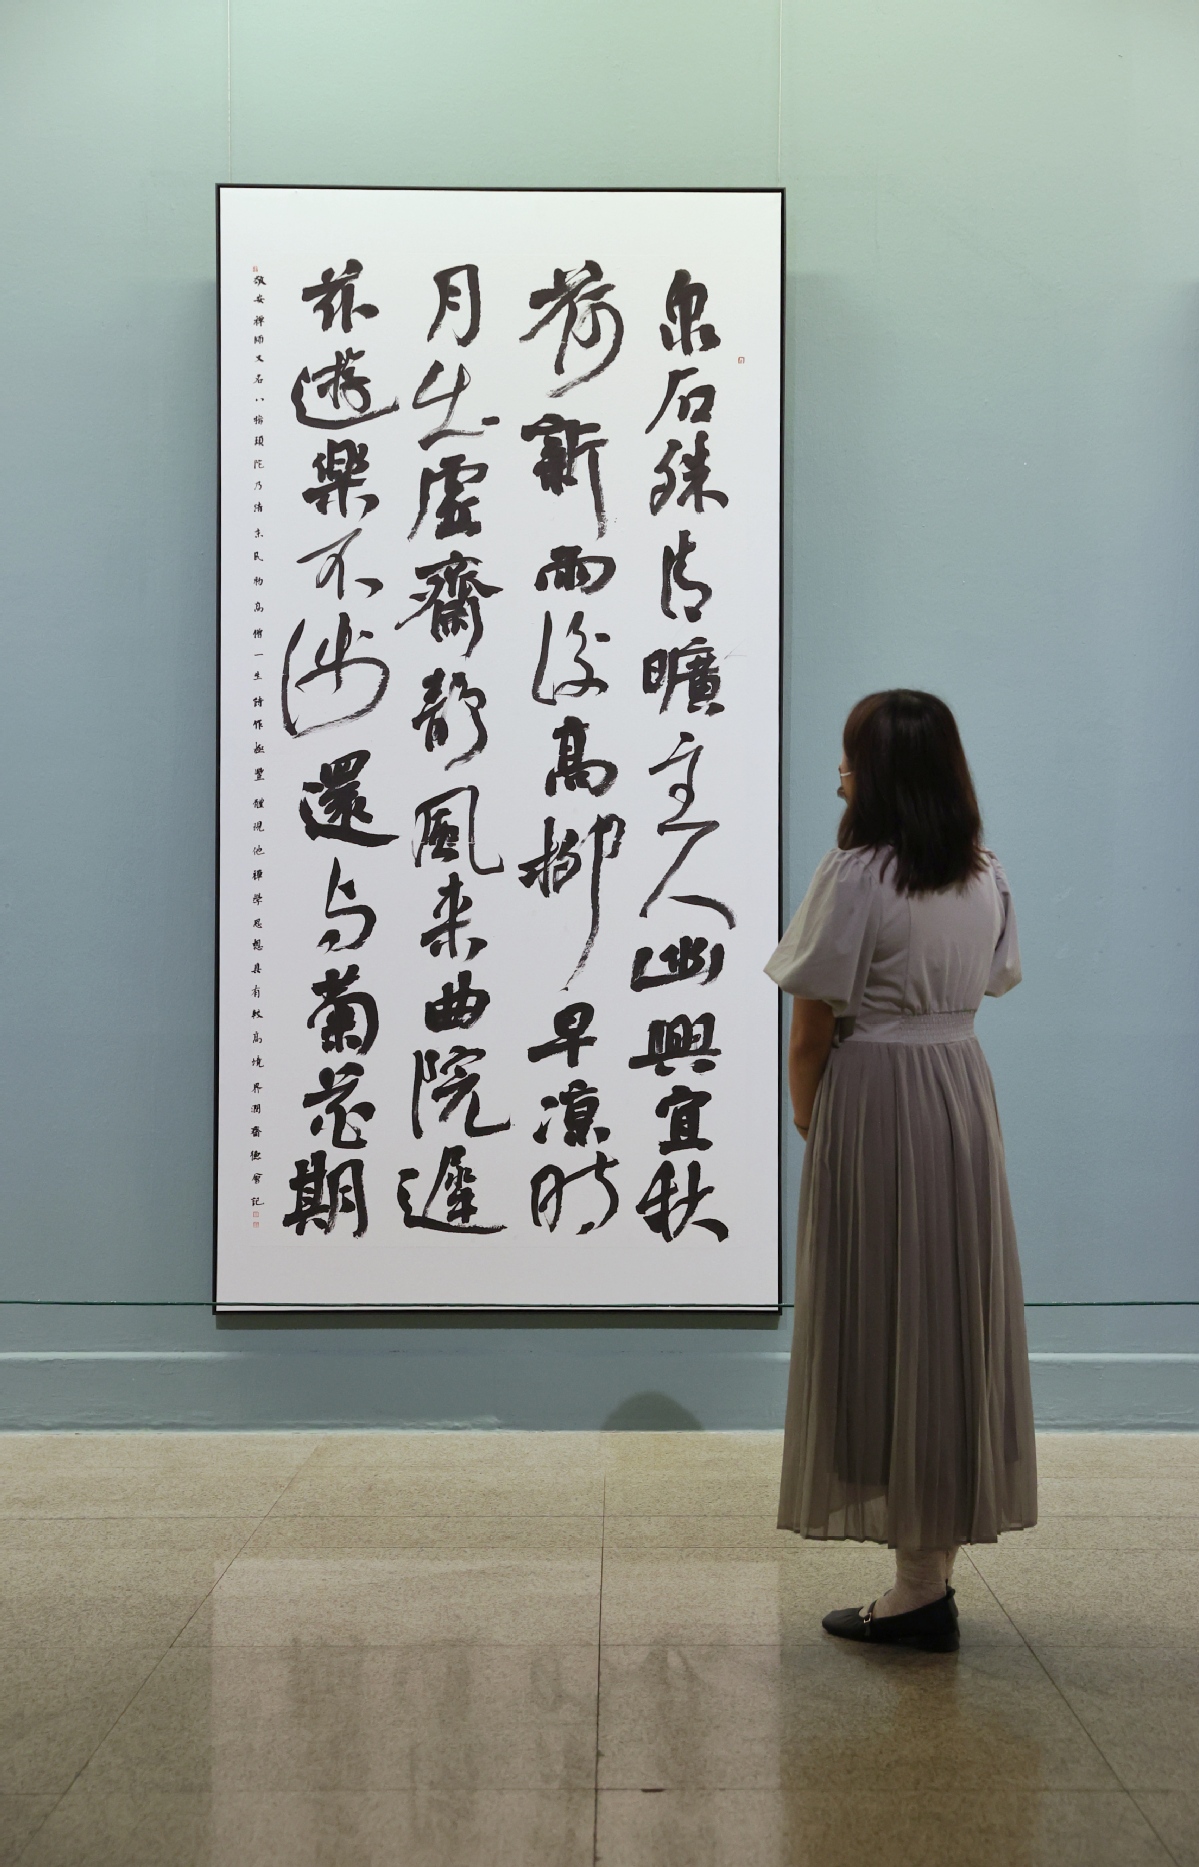 泉石殊清曠主人幽興宜秋
荷新雨後高柳早涼時
月出虛齋靜風来曲院遲
茲遊樂不淺還与菊花期
敬安禪師又名八指頭陀乃清末民初高僧一生詩作極豐體現他禪學思想具有較高境界潤齋德記